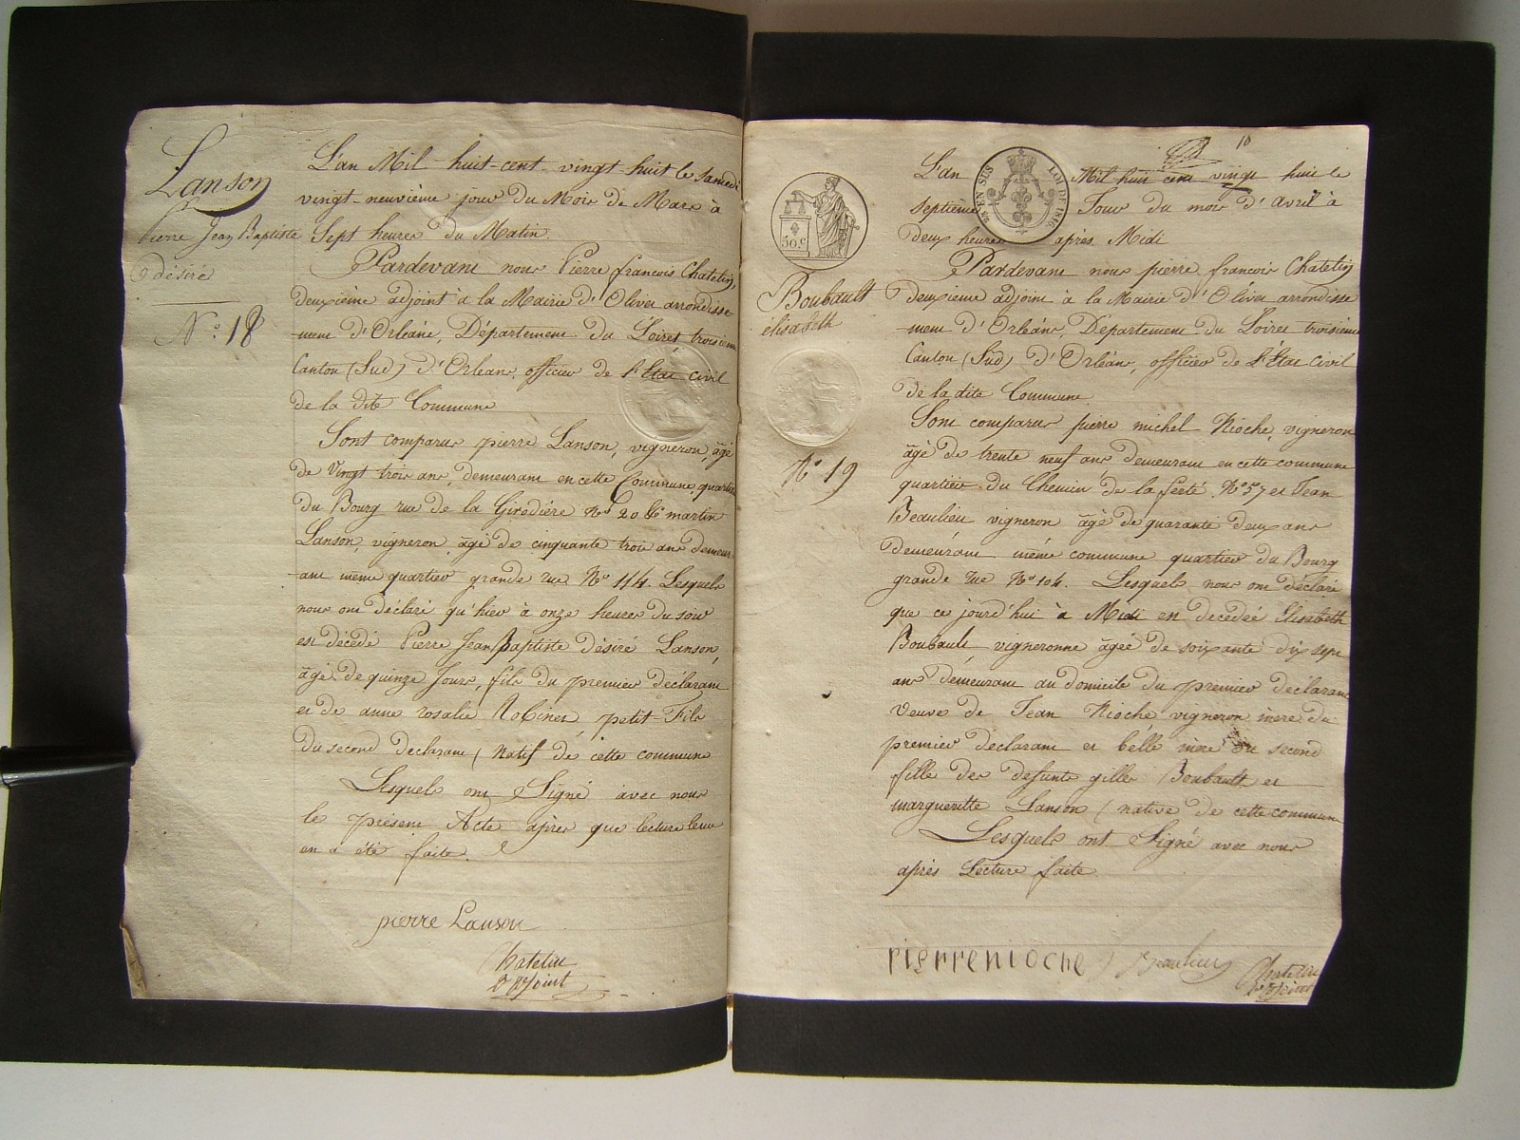 Lanson
Pierre Jean Baptiste
désiré
N.o 18
L'an Mil huit-cent vingt-huit le samedi
vingt-neuvième jour du Mois de Mars à
Sept heures du Matin.
Pardevant nous Pierre françois Chatelin,
deuxième adjoint à la Mairie d'Olivet arrondisse
-ment d'Orléans, Département du Loiret troisième
Canton (Sud) d'Orléans, officier de l'État civil
de la dite Commune
Sont comparus pierre Lanson, vigneron, âgé
de Vingt trois ans, demeurant en cette Commune, quartier
du Bourg rue de la Girodière No 20 & martin
Lanson, vigneron, âgé de cinquante trois ans demeur
-ant même quartier grande rue No 114. Lesquels
nous ont déclaré qu'hier à onze heures du soir
est décédé Pierre Jean Baptiste désiré Lanson,
âgé de quinze Jours, fils du premier déclarant
et de anne rosalie Robinet petit-Fils
du second déclarant (Natif de cette commune
Lesquels ont Signé avec nous
le présent Acte après que lecture leur
en a été faite.
pierre Lanson
Chatelin
adjoint
10
50.c
EN SUS
LOI DE 1816
Boubault
élisabeth
No 19
L'an Mil huit cent vingt huit le
septième Jour du mois d'Avril à
deux heures après Midi
Pardevant nous pierre françois Chatelin
deuxième adjoint à la Mairie d'Olivet arrondisse
-ment d'Orléans, Département du Loiret troisième
Canton (Sud) d'Orléans, officier de l'État civil
de la dite Commune.
Sont comparus pierre michel Nioche, vigneron
âgé de trente neuf ans, demeurant en cette commune
quartier du Chemin de la ferté No 57 et Jean
Beaulieu vigneron âgé de quarante deux ans
demeurant même commune quartier du Bourg
grande rue No 104. Lesquels nous ont déclaré
que ce jourd'hui à Midi est décédée Elisabeth
Boubault vigneronne âgée de soixante dix sept
ans demeurant au domicile du premier déclarant
Veuve de Jean Nioche vigneron, mère du
premier déclarant et belle mère du second
fille des defunts gilles Boubault et
margueritte Lanson (native de cette commune
Lesquels ont Signé avec nous
après Lecture faite
Pierre nioche Beaulieu Chatelin
adjoint